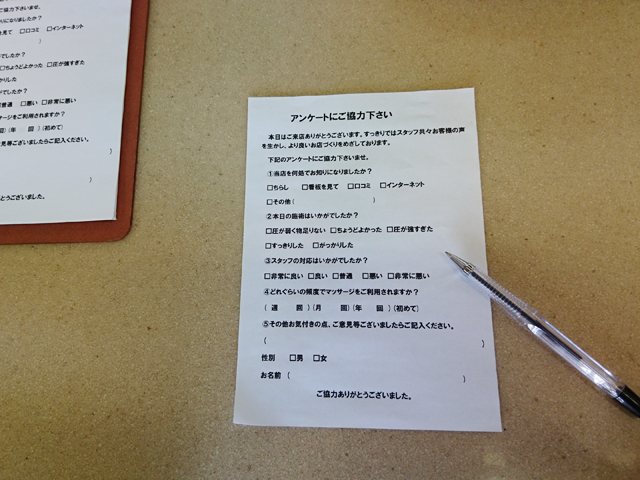 ご協力下さいませ。
になりましたか？
を見て □口コミ □インターネット
)
でしたか？
□ちょうどよかった □圧が強すぎた
かりした
でしたか？
普通 □悪い □非常に悪い
サージをご利用されますか？
回)(年 回)(初めて)
意見等ございましたらご記入ください。
)
)
とうございました。
アンケートにご協力下さい
本日はご来店ありがとうございます。すっきりではスタッフ共々お客様の声
を生かし、より良いお店づくりをめざしております。
下記のアンケートにご協力下さいませ。
①当店を何処でお知りになりましたか？
□ちらし □看板を見て □口コミ □インターネット
□その他( )
②本日の施術はいかがでしたか？
□圧が弱く物足りない □ちょうどよかった □圧が強すぎた
□すっきりした □がっかりした
③スタッフの対応はいかがでしたか？
□非常に良い □良い □普通 □悪い □非常に悪い
④どれぐらいの頻度でマッサージをご利用されますか？
( 週 回 )(月 回)(年 回 )(初めて)
⑤その他お気付きの点、ご意見等ございましたらご記入ください。
( )
性別 □男 □女
お名前 ( )
ご協力ありがとうございました。